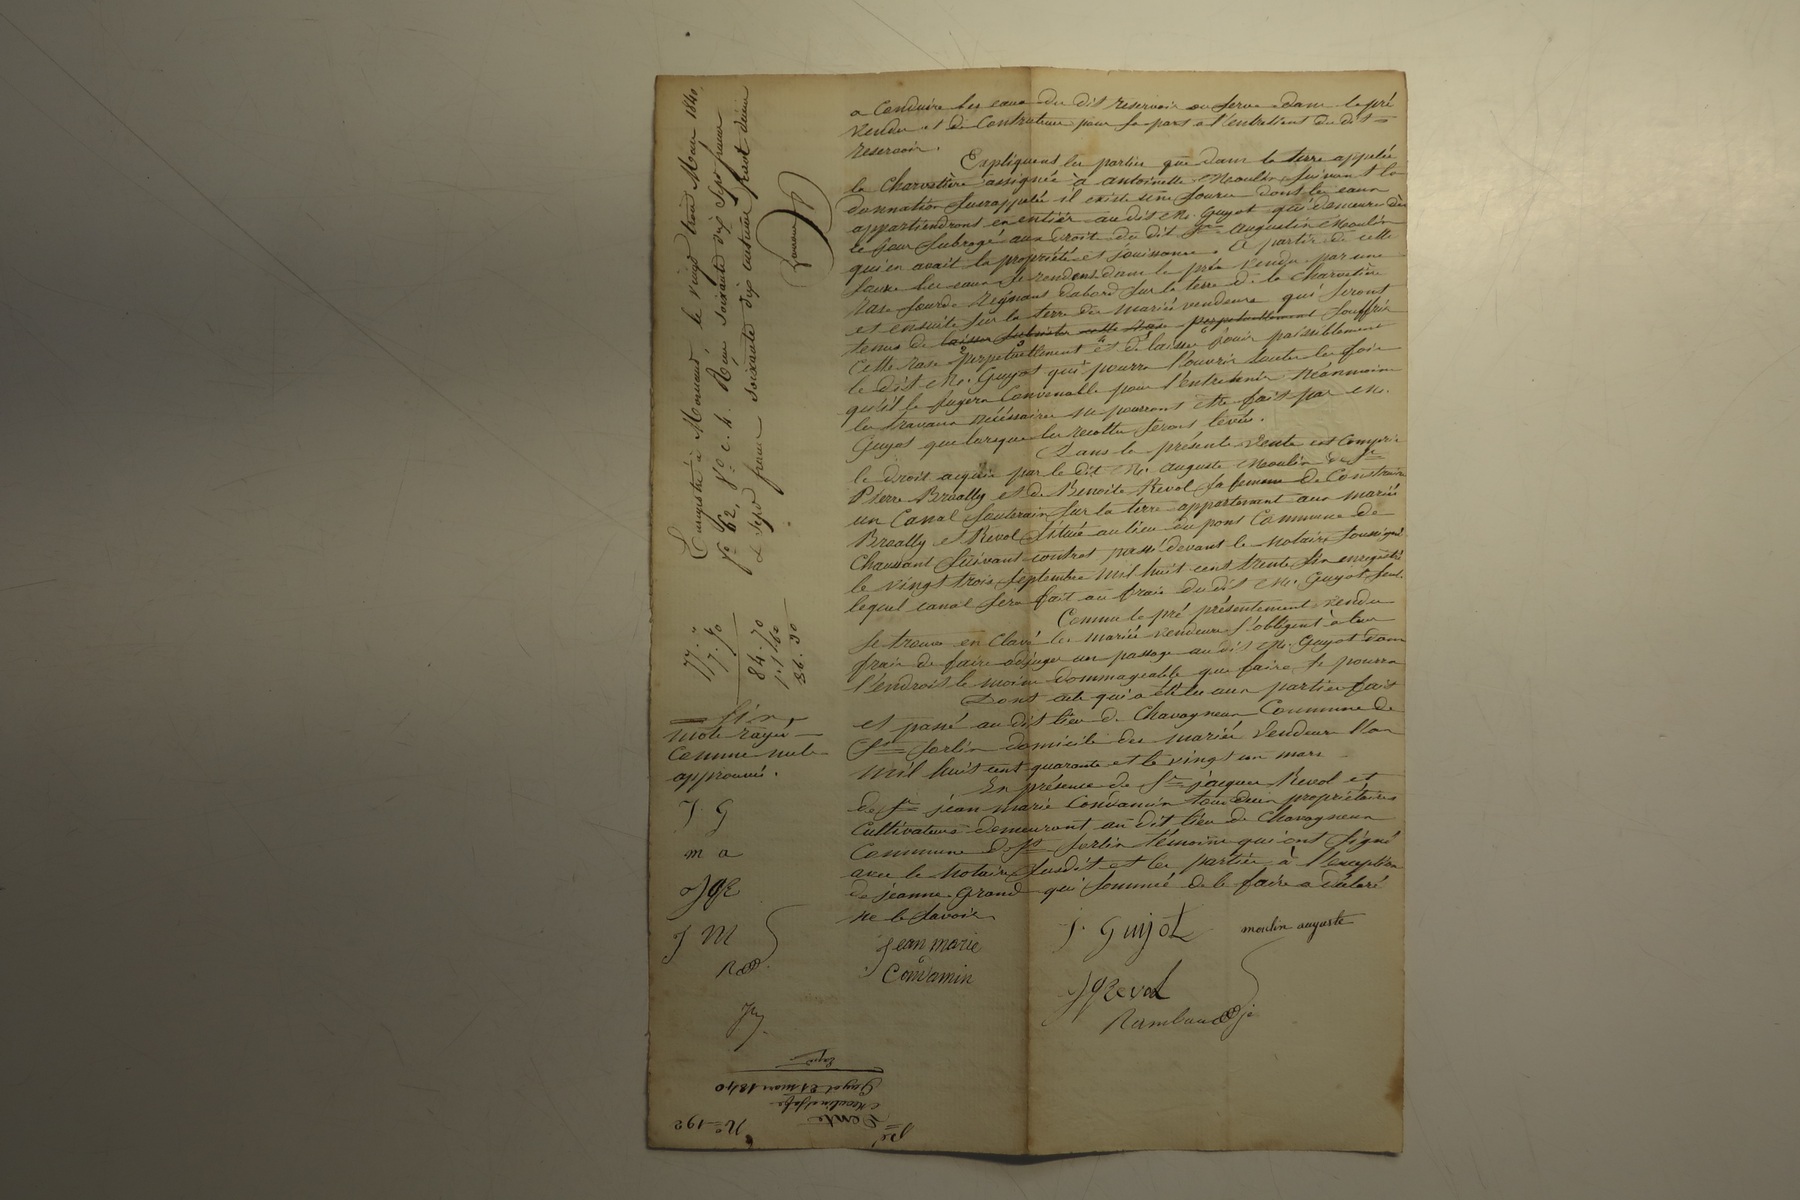 a Conduire les eaux du dit reservoir ou serve dans le pré
vendu et de Contribuer pour sa part a l'entretient du dit
reservoir.
Expliquent les parties que dans la terre appelée
la Charvetière assignée à antoinette Moulin suivant la
donnation susrappelée il existe une source dont les eaux
appartiendront en entier au dit Mr. Guyot qui demeure dès
ce jour subrogé aux droits du dit Sr augustin Moulin
qui en avait la propriété et jouissance. A partir de cette
source les eaux se rendent dans le pré vendu par une
rase sourde regnant dabord sur la terre de la Charvetière
et ensuite sur la terre des mariés vendeurs qui seront
tenus de laisser subsister cette rase perpetuellement souffrir
cette rase perpetuellement et de laisser jouir paisiblement
le dit Mr. Guyot qui pourra l'ouvrir toutes les fois
qu'il le jugera Convenable pour l'entretenir néanmoins
les travaux nécéssaires ne pourront etre faits par Mr.
Guyot que lorsque les recoltes seront levées.
Dans la présente vente est Compris
le droit acquis par le dit Mr. auguste Moulin de Sr
Pierre Broally et de Benoite Revol sa femme de Construire
un Canal souterain sur la terre appartenant aux mariés
Broally et Revol située au lieu du pont Commune de
Chaussant suivant contrat passé devant le notaire soussigné
le vingt trois septembre mil huit cent trente six enregistré
lequel canal sera fait au frais du dit Mr. Guyot seul.
Comme le pré présentement vendu
se trouve en clavé les mariés vendeurs s'obligent à leur
frais de faire adjuger un passage au dit Mr. Guyot dans
l'endroit le moins dommageable que faire se pourra
Dont acte qui a été lu aux parties fait
et passé au dit lieu de Chavagneux Commune de
St Sorlin domicile des mariés vendeurs l'an
mil huit cent quarante et le vingt un mars
En présence de Sr jacques Revol et
de Sr jean marie Condamin tous deux propriétaires
Cultivateurs demeurant au dit lieu de Chavagneux
Commune de St Sorlin témoins qui ont signé
avec le notaire susdit et les parties à l'exception
de jeanne Grand qui sommée de le faire a déclaré
ne le savoir
Jean marie
Condamin
J. Guyot
moulin auguste
JQ Revol
Rambaud
Enregistré à Mornant le vingt trois Mars 1840,
fo 62, ro c. 4. Reçu soixante dix sept francs
& sept francs soixante dix centimes pour décime
77. "
7. 70
84. 70
mots rayés
comme nuls
approuvés.
J G
m a
J M
No 192
Vente
Moulin et
Guyot 21 mars 1840